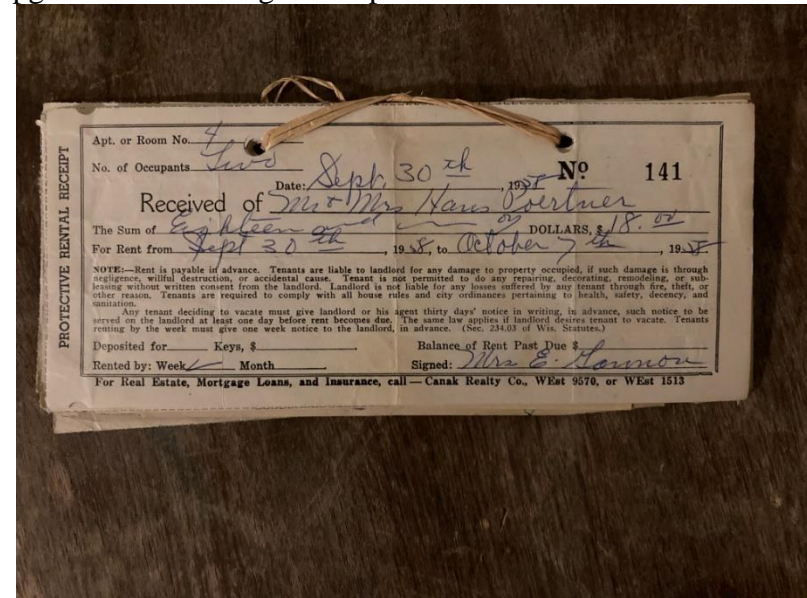 PROTECTIVE RENTAL RECEIPT
Apt. or Room No. 4
No. of Occupants Two
Date: Sept. 30 th, 1958 No 141
Received of Mr & Mrs Hans Poertner
The Sum of Eighteen and no DOLLARS, $ 18.00
For Rent from Sept 30 th, 1958, to October 7 th, 1958
NOTE:—Rent is payable in advance. Tenants are liable to landlord for any damage to property occupied, if such damage is through
negligence, willful destruction, or accidental cause. Tenant is not permitted to do any repairing, decorating, remodeling, or sub-
leasing without written consent from the landlord. Landlord is not liable for any losses suffered by any tenant through fire, theft, or
other reason. Tenants are required to comply with all house rules and city ordinances pertaining to health, safety, decency, and
sanitation.
Any tenant deciding to vacate must give landlord or his agent thirty days' notice in writing, in advance, such notice to be
served on the landlord at least one day before rent becomes due. The same law applies if landlord desires tenant to vacate. Tenants
renting by the week must give one week notice to the landlord, in advance. (Sec. 234.03 of Wis. Statutes.)
Deposited for Keys, $ Balance of Rent Past Due $
Rented by: Week ✓ Month Signed: Mrs E. Gannon
For Real Estate, Mortgage Loans, and Insurance, call — Canak Realty Co., WEst 9570, or WEst 1513